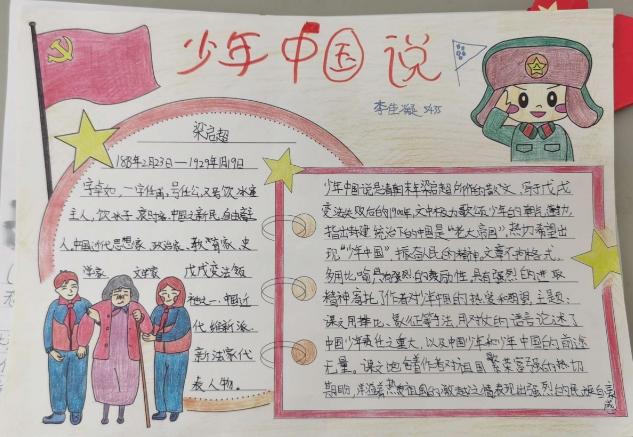 少年中国说
李佳凝 5435
梁启超
1873年2月23日—1929年1月19日
字卓如，一字任甫，号任公，又号饮冰室
主人，饮冰子，哀时客，中国之新民，自由斋主
人。中国近代思想家、政治家、教育家、史
学家 文学家 戊戌变法领
袖之一、中国近
代维新派、
新法家代
表人物。
少年中国说是清朝末年梁启超所作的散文，写于戊戌
变法失败后的1900年，文中极力歌颂少年的朝气蓬勃，
指出封建统治下的中国是“老大帝国”，热切希望出
现“少年中国”，振奋人民的精神，文章不拘格式，
多用比喻，具有强烈的鼓励性，具有强烈的进取
精神，寄托了作者对少年中国的热爱和期望，主题：
课文用排比、象征等手法，用对仗的语言论述了
中国少年责任之重大，以及中国少年和少年中国的前途
无量。课文饱含着作者对祖国繁荣富强的热切
期盼，洋溢着热爱祖国的激越之情表现出强烈的民族自豪
感